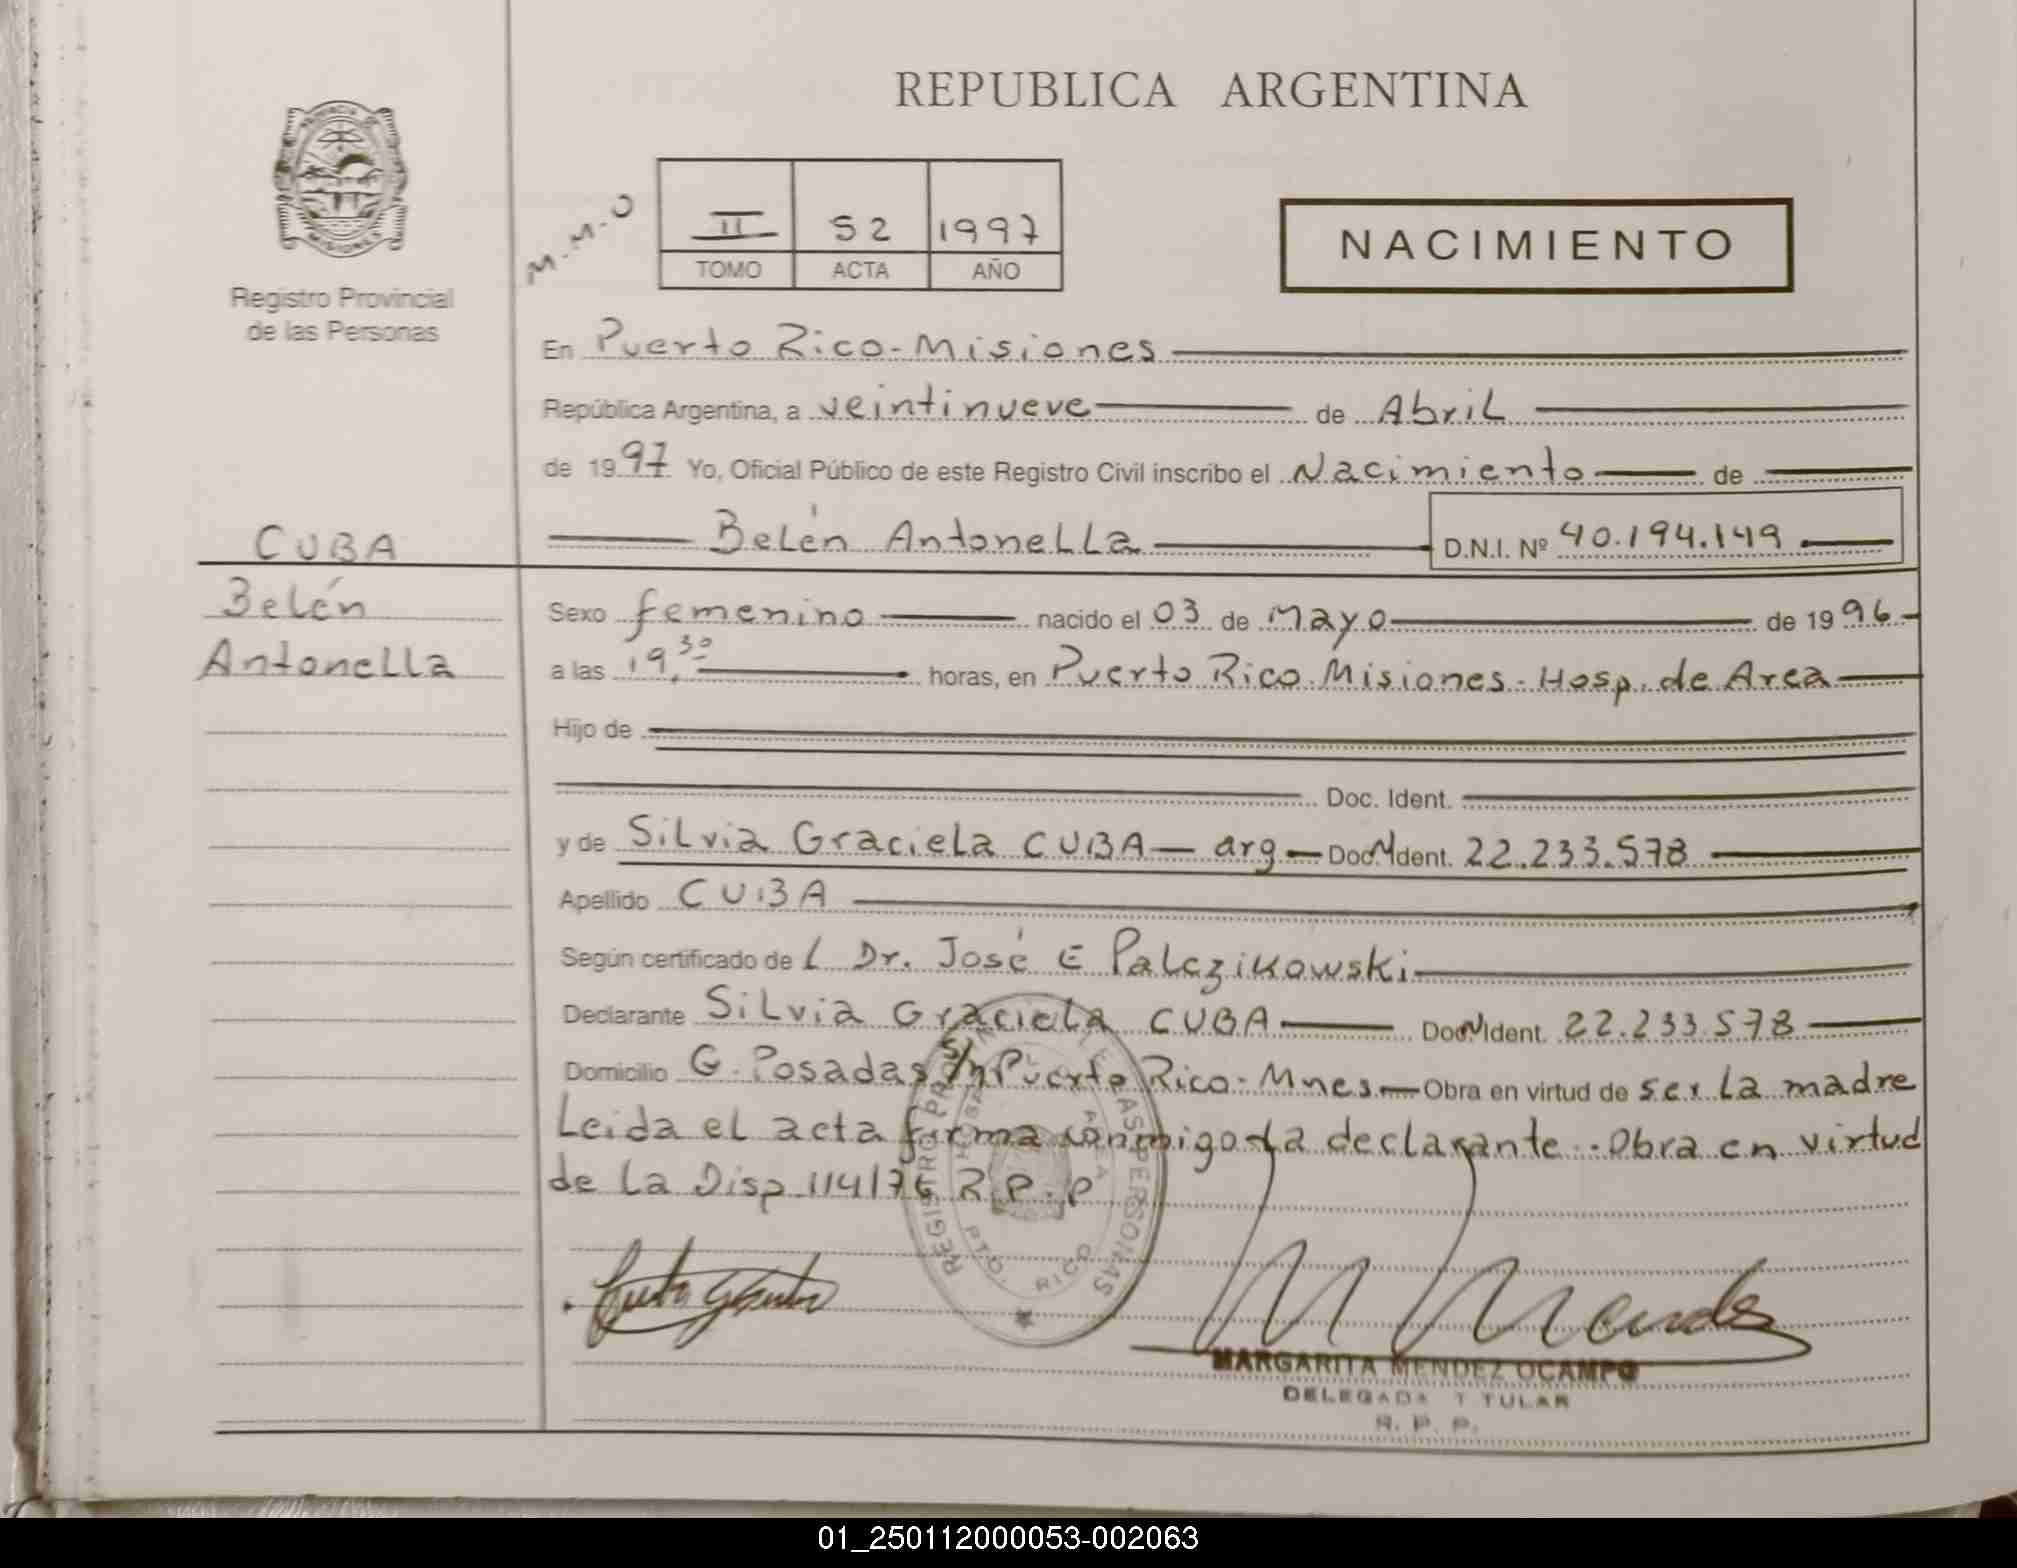 REPUBLICA ARGENTINA
PROVINCIA DE
MISIONES
Registro Provincial
de las Personas
M.M.O
II 52 1997
TOMO ACTA AÑO
NACIMIENTO
En Puerto Rico-Misiones
República Argentina, a veintinueve de Abril
de 1997 Yo, Oficial Público de este Registro Civil inscribo el Nacimiento de
Belén Antonella D.N.I. Nº 40.194.149
CUBA
Belén
Antonella
Sexo femenino nacido el 03 de Mayo de 1996
a las 19,30 horas, en Puerto Rico Misiones-Hosp. de Area
Hijo de
Doc. Ident.
y de Silvia Graciela CUBA arg Doc. Ident. 22.233.578
Apellido CUBA
Según certificado de L Dr. José E Palczikowski
Declarante Silvia Graciela CUBA Doc. Ident. 22.233.578
Domicilio G. Posadas s/n Puerto Rico-Mnes Obra en virtud de ser la madre
Leida el acta firma conmigo la declarante. Obra en virtud
de la Disp 114/76 R.P.P
REGISTRO DE LAS PERSONAS
PTO. RICO
M Mendez
MARGARITA MENDEZ OCAMPO
DELEGADA TITULAR
R. P. P.
01_250112000053-002063